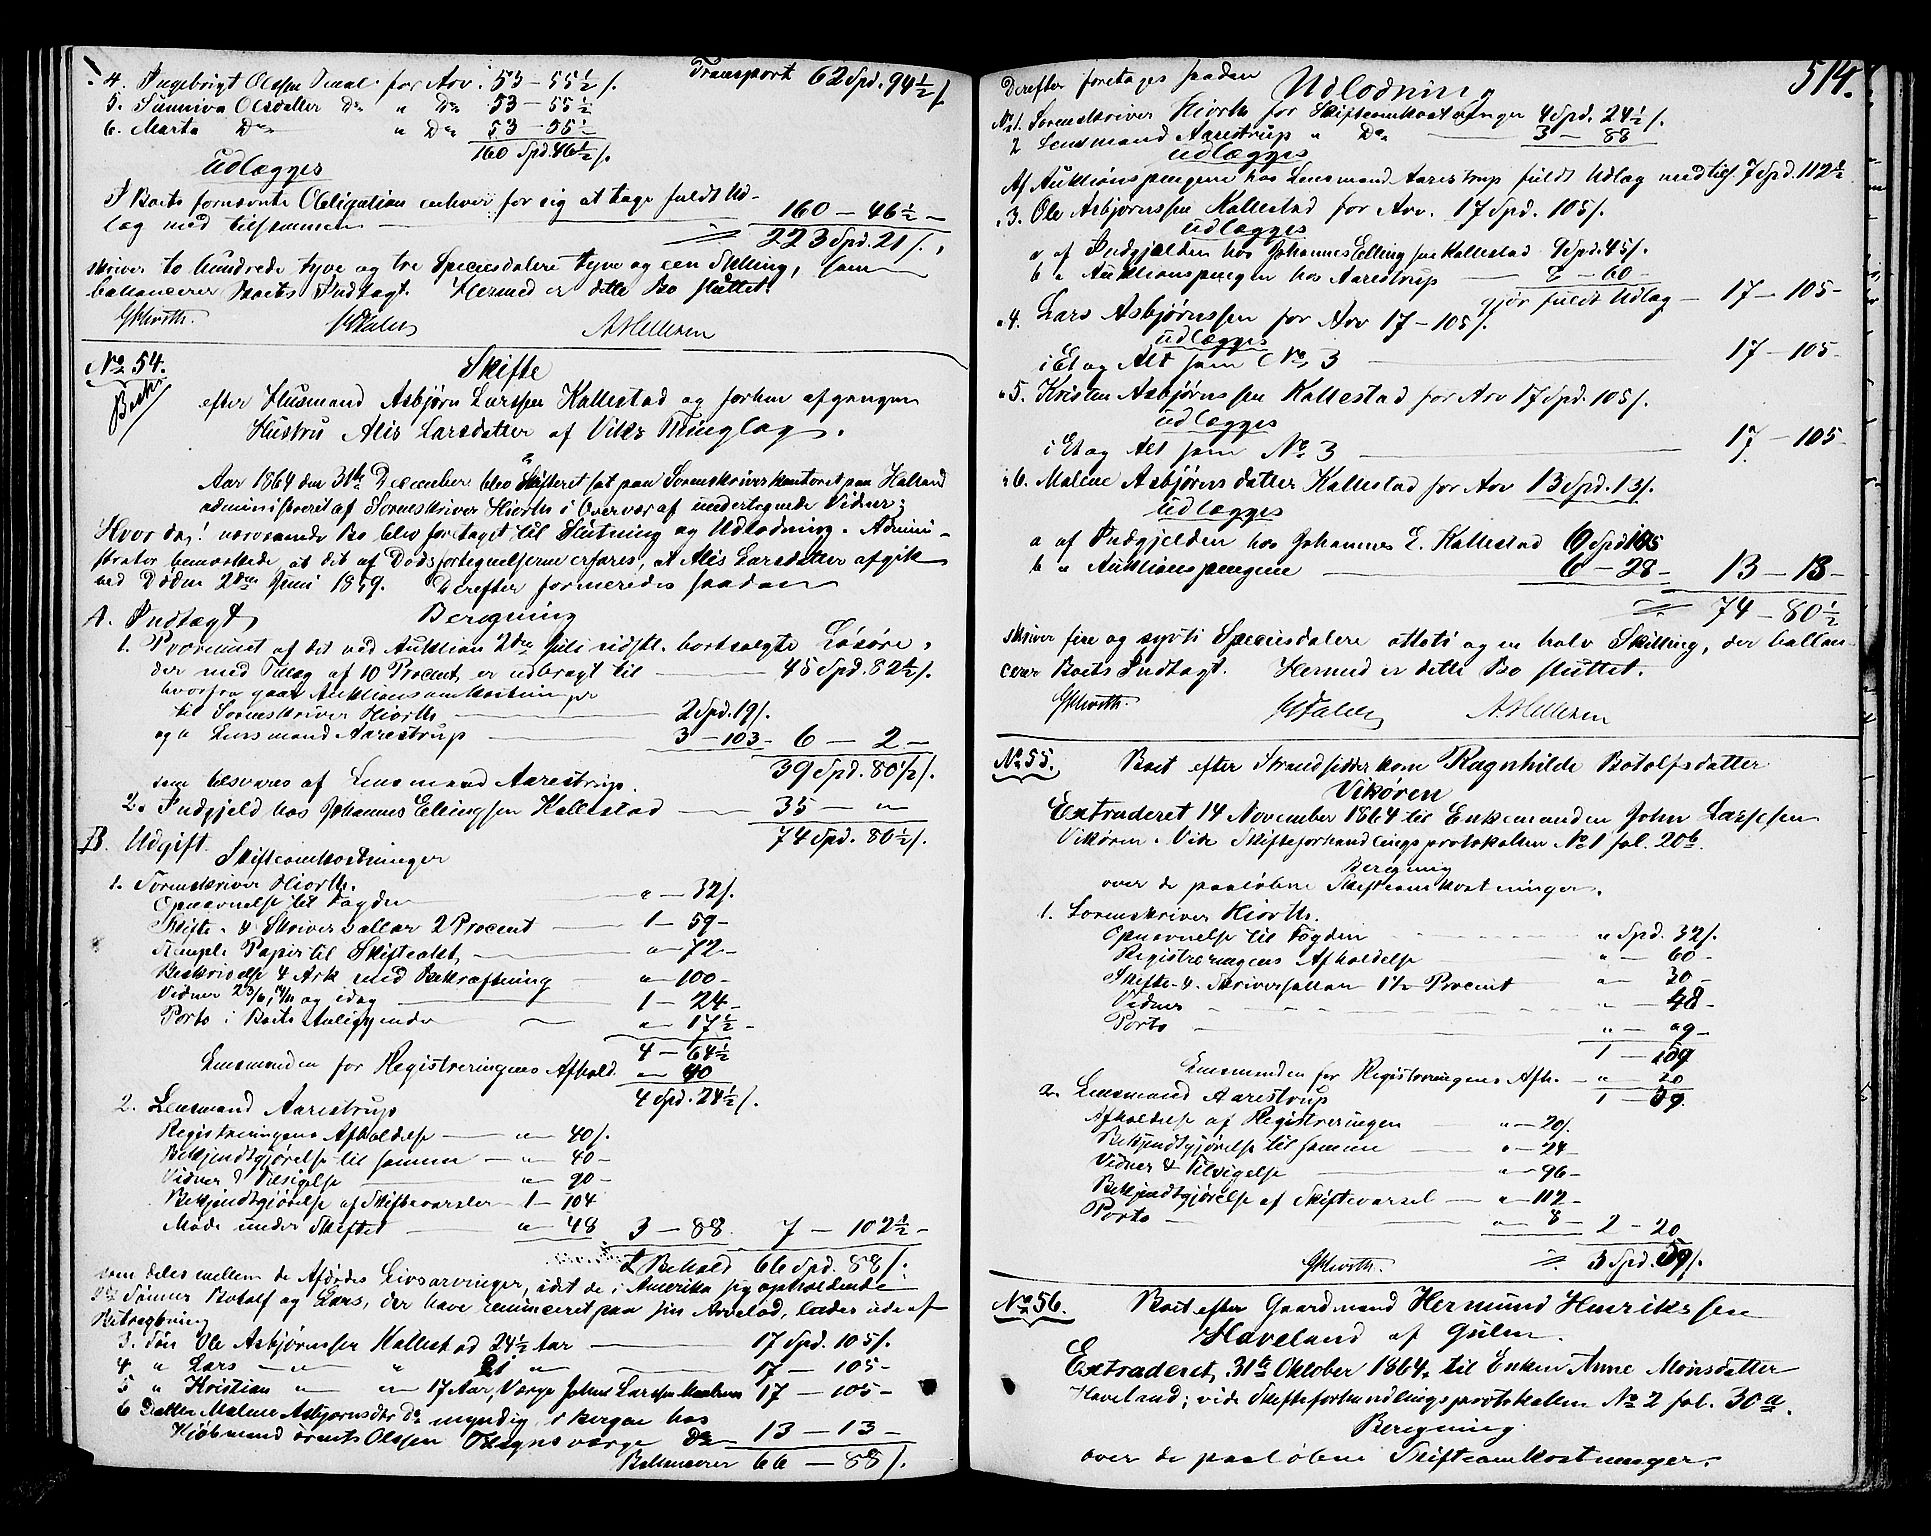 Transport 62 Spd. 94½ /
4. Ingebrigt Olssen Draal for Arv. 53 – 55½ /.
5. Sunniva Olsdatter Do " Do 53 – 55½
6. Marta Do " Do 53 – 55½
160 Spd. 46½ /.
udlægges
I Boets fornævnte Obligation enhver for sig at tage fuldt Ud-
læg med tilsammen — 160 – 46½ –
223 Spd. 21 /.,
skriver to hundrede tyve og tre Speciesdalere tyve og een Skilling, som
ballancerer Boets Indtægt. Hermed er dette Bo sluttet.
GHiorth. A Hellesen
No 54.
Besk.
Skifte
efter Husmand Asbjørn Larssen Kallestad og forhen afgangen
Hustru Alis Larsdatter af Viks Thinglag.
Aar 1864 den 31te December blev Skifteret sat paa Sorenskriverkontoret paa Helland
administreret af Sorenskriver Hiorth i Overvær af undertegnede Vidner;
Hvorda! nærværende Bo blev foretaget til Slutning og Udlodning. Admini-
strator bemærkede, at det af Dødsfortegnelserne erfares, at Alis Larsdatter afgik
ved Døden 2den Juni 1859. Derefter formeredes saadan
Beregning
A. Indtægt
1. Provenuet af det ved Auktion 2den Juli sidstl. bortsolgte Løsøre,
der med Tillæg af 10 Procent, er udbragt til — 45 Spd. 82½ /.
hvorfra gaar Auktionsomkostninger
til Sorenskriver Hiorth — 2 Spd. 19 /.
og " Lensmand Aarestrup — 3 – 103 – 6 – 2 –
39 Spd. 80½ /.
som besvares af Lensmand Aarestrup.
2. Indgjeld hos Johannes Ellingsen Kallestad — 35 – "
74 Spd. 80½ /.
B. Udgift.
Skifteomkostninger
1. Sorenskriver Hiorth.
Opnævnelse til Fogden " – 32 /.
Skifte- & Skriversallær 2 Procent — 1 – 59 –
Stemple Papir til Skifteakt, — " – 72 –
Beskrivelse 4 Ark med Bekræftning " – 100 –
Vidner 23/6, og idag — 1 – 24 –
Porto i Boets Anliggender " – 17½ –
4 – 64½
Lensmanden for Registreringens Afhold. " – 40
4 Spd. 24½ /.
2. Lensmand Aarestrup
Registreringens Afholdelse — " – 40 /.
Bekjendtgjørelse til samme — " – 40 –
Vidner & Tilsigelse — " – 90 –
Bekjendtgjørelse af Skiftevarsler – 1 – 104
Møde under Skiftet — " – 48 3 – 88. 7 – 102½ –
I Behold 66 Spd. 88 /.
som deles mellem de Afdødes Livsarvinger, idet de i Amerika sig opholdende
Sønner Botolf og Lars, der have renunceret paa sin Arvelod, lades ude af
Betragtning
3. Søn Ole Asbjørnssen Kallestad 24½ Aar — 17 Spd. 105 /.
4 " Lars — " 21 " — 17 – 105 –
5 " Kristian " " 17 Aar, Værge Johns Larssen 17 – 105 –
6 Datter Malene Asbjørnsdtr Do myndig, i Bergen hos
Kjøbmand Olssen Tilsynsværge Do 13 – 13 –
Ballancerer 66 – 88 /.
514.
Derefter foretages saadan
Udlodning
No 1. Sorenskriver Hiorth for Skifteomkostninger 4 Spd. 24½ /.
2 Lensmand Aarestrup " Do — 3 – 88
udlægges
Af Auktionspengene hos Lensmand Aarestrup fuldt Udlæg med tils. 7 Spd. 112½
" 3. Ole Asbjørnssen Kallestad for Arv. 17 Spd. 105 /.
udlægges
a af Indgjelden hos Johannes Ellingssen Kallestad 9 Spd. 45 /.
b " Auktionspengene hos Aarestrup — 8 – 60 –
gjør fuldt Udlæg – 17 – 105 –
" 4. Lars Asbjørnssen for Arv 17 – 105 /.
udlægges
i Et og Alt som No. 3 — 17 – 105 –
" 5. Kristen Asbjørnssen Kallestad for Arv 17 Spd. 105 /.
udlægges
i Et og Alt som No. 3 — 17 – 105 –
" 6. Malene Asbjørnsdatter Kallestad for Arv 13 Spd. 13 /.
udlægges
a af Indgjelden hos Johannes E. Kallestad 6 Spd 105
b " Auktionspengene — 6 – 28 – 13 – 13 –
74 – 80½
skriver fire og sytti Speciesdalere otteti og en halv Skilling, der ballan-
cerer Boets Indtægt. Hermed er dette Bo sluttet.
GHiorth. A. Hellesen
No 55.
Boet efter Strandsidderkone Ragnhilde Botolfsdatter
Vikøren
Extraderet 14 November 1864 til Enkemanden John Larssen
Vikøren. Vide Skifteforhandlingsprotokollen No 1 fol. 20b.
Beregning
over de paaløbne Skifteomkostninger.
1. Sorenskriver Hiorth.
Opnævnelse til Fogden " Spd. 32 /.
Registreringens Afholdelse " – 60 –
Skifte- & Skriversallær 1½ Procent " – 30 –
Vidner " – 48 –
Porto — " – 09 –
1 – 59
Lensmanden for Registreringens Afh. – " – 20
1 – 39.
2. Lensmand Aarestrup
Afholdelse af Registreringen — " – 20 /.
Bekjendtgjørelse til samme — " – 24 –
Vidner & Tilsigelse — " – 96 –
Bekjendtgjørelse af Skiftevarsel — " – 112 –
Porto — " – 8 – 2 – 20
3 Spd. 59 /.
GHiorth.
No 56.
Boet efter Gaardmand Hermund Henrikssen
Haveland af Gulen.
Extraderet, 31te Oktober 1864, til Enken Anne Monsdatter
Haveland; vide Skifteforhandlingsprotokollen No 2 fol. 30a.
Beregning
over de paaløbne Skifteomkostninger.